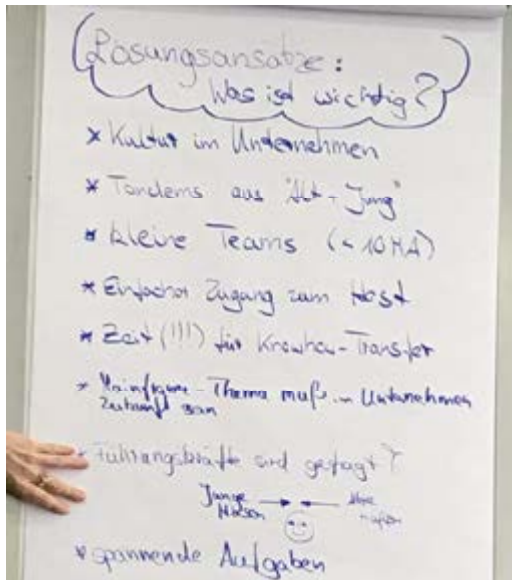 Lösungsansätze:
Was ist wichtig?
* Kultur im Unternehmen
* Tandems aus "Alt-Jung"
* kleine Teams (< 10 MA)
* Einfacher Zugang zum Host
* Zeit (!!!) für Knowhow-Transfer
* Mainframe-Thema muß im Unternehmen
Zukunft sein
* Führungskräfte sind gefragt?
Junge
Alte
* spannende Aufgaben